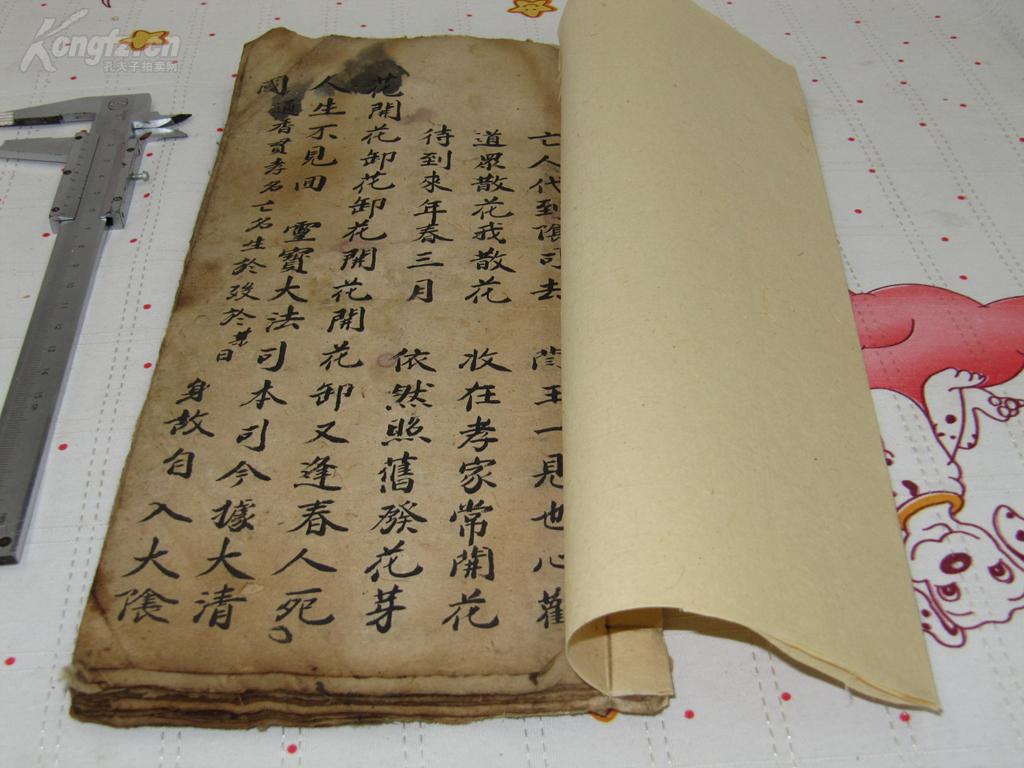 Kongfz.cn
孔夫子拍卖网
亡人代到陰司去 閆王一見也心
道眾散花我散花 收在孝家常開花
待到來年春三月 依然照舊發花芽
花開花卸花卸花開花開花卸又逢春人死
人生不見回 靈寶大法司本司今據大清
國 香貫孝名亡名生於歿於某日 身故自入大陰